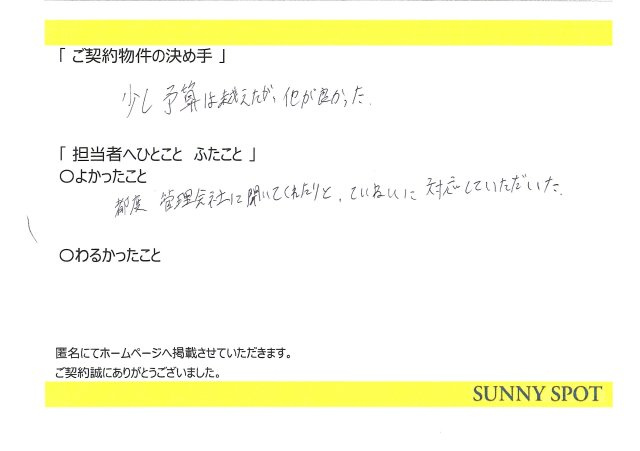 「 ご契約物件の決め手 」
少し予算は越えたが、他が良かった.
「 担当者へひとこと ふたこと 」
○よかったこと
都度 管理会社に聞いてくれたりと、ていねいに対応していただいた.
○わるかったこと
匿名にてホームページへ掲載させていただきます。
ご契約誠にありがとうございました。
SUNNY SPOT